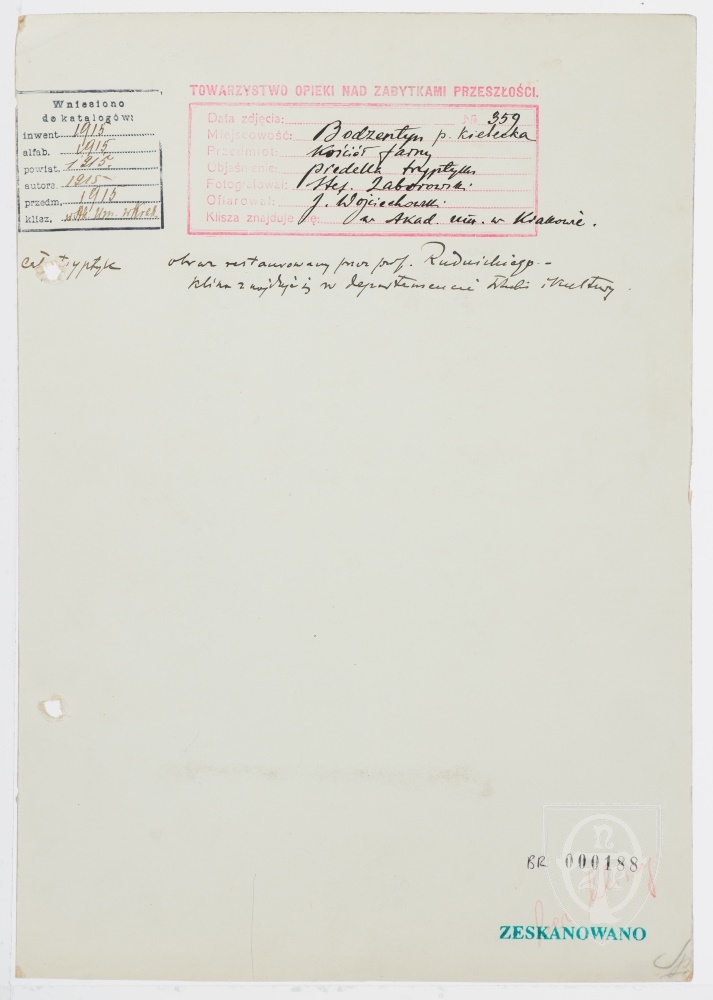 Wniesiono
do katalogów:
inwent. 1915
alfab. 1915
powiat. 1915
autora. 1915
przedm. 1915
klisz. w Ak. Um. w Krak.
TOWARZYSTWO OPIEKI NAD ZABYTKAMI PRZESZŁOŚCI.
Data zdjęcia: № 359
Miejscowość: Bodzentyn p. Kielecka
Przedmiot: Kościół farny
Objaśnienie: predella tryptyku
Fotografował: Stef. Zaborowski
Ofiarował: J. Wojciechowski
Klisza znajduje się: w Akad. um. w Krakowie.
cał. tryptyk obraz restaurowany przez prof. Rudnickiego –
klisza znajduje się w departamencie sztuki i kultury.
BR 000188
ZESKANOWANO